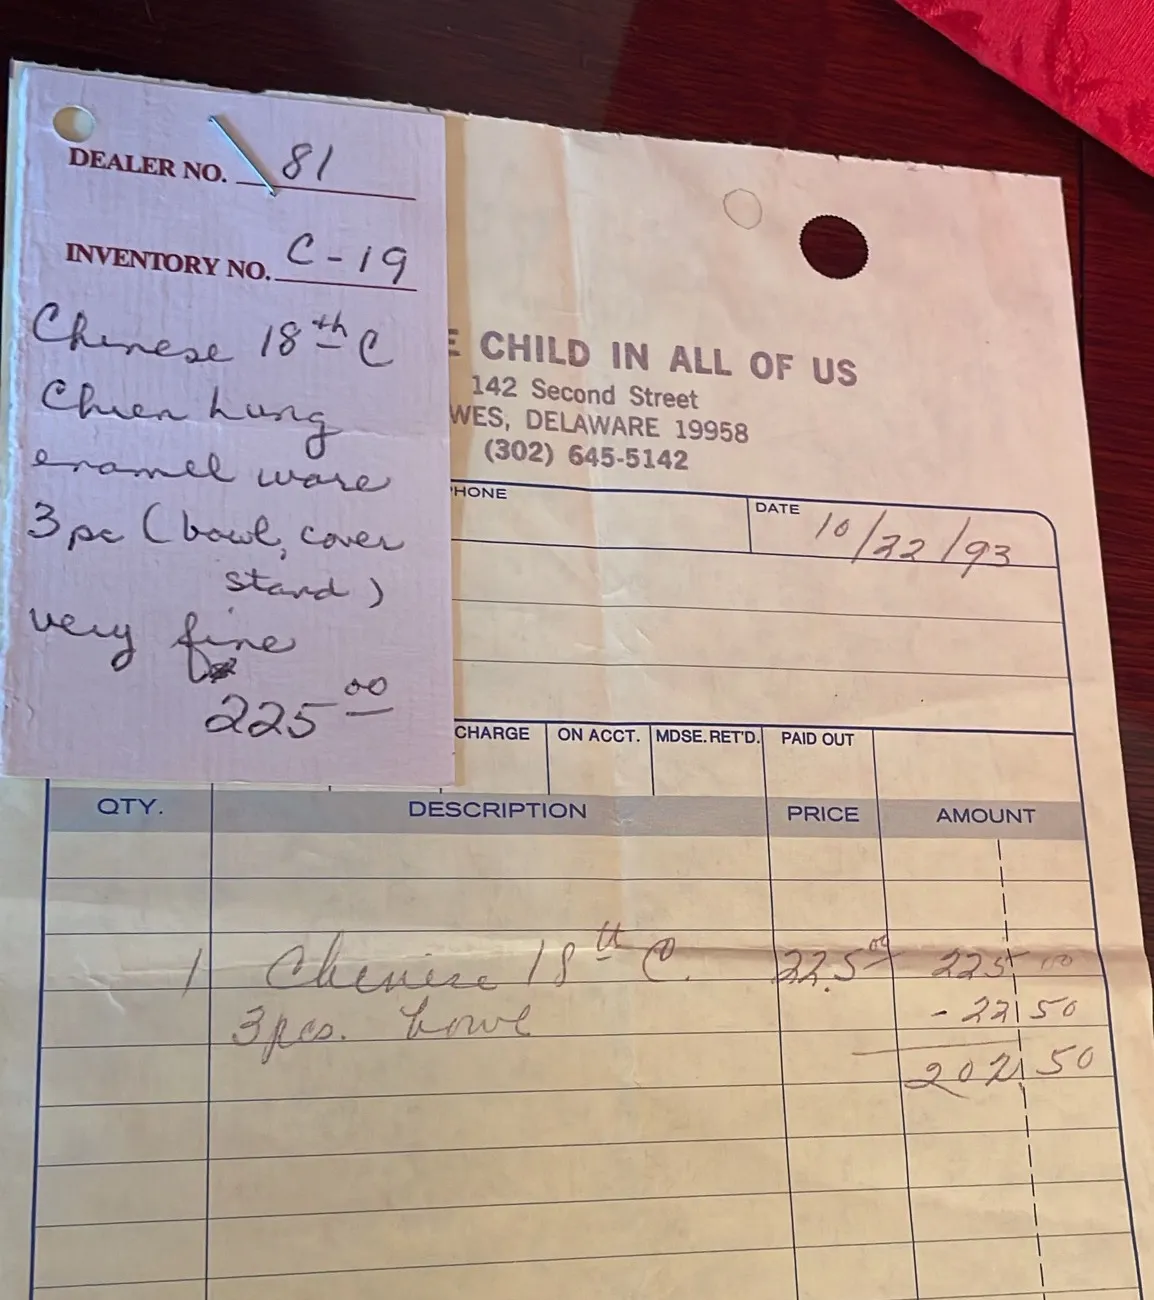 DEALER NO. 81
INVENTORY NO. C-19
Chinese 18th C
Chien Lung
enamel ware
3 pc (bowl, cover
stand)
very fine
225 00
E CHILD IN ALL OF US
142 Second Street
WES, DELAWARE 19958
(302) 645-5142
HONE
DATE 10/22/93
CHARGE ON ACCT. MDSE. RET'D. PAID OUT
QTY. DESCRIPTION PRICE AMOUNT
1 Chinese 18th C. 225 00 225 00
3 pcs. bowl - 22 50
202 50